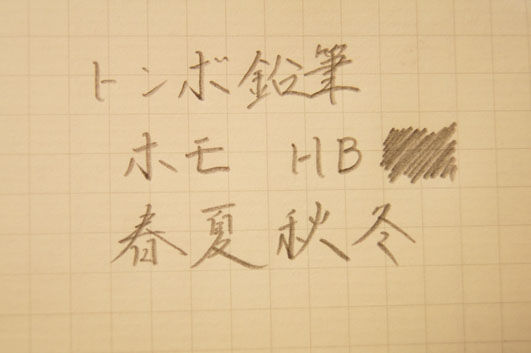 トンボ鉛筆
ホモ HB
春夏秋冬